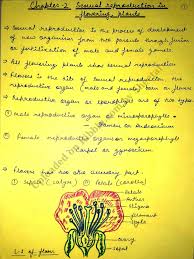 Chapter-2 Sexual reproduction in
flowering plants
→ Sexual reproduction is the process of development
of new organism from two parents through fusion
or fertilization of male and female gamete
→ All flowering plants show sexual reproduction
→ Flower is the site of sexual reproduction. the
reproductive organ (male and female) born on flower
→ Reproductive organ or sporophylls are of two types
① male reproductive organ or microsporophylls -
stamen or androecium
② Female reproductive organ or megasporophylls
carpel or gynoecium
→ Flower has two accessory part:
① sepal (calyx) ② petals (corolla)
Petals
Anther
stigma
filament
style
ovary
sepal
L.S of flower